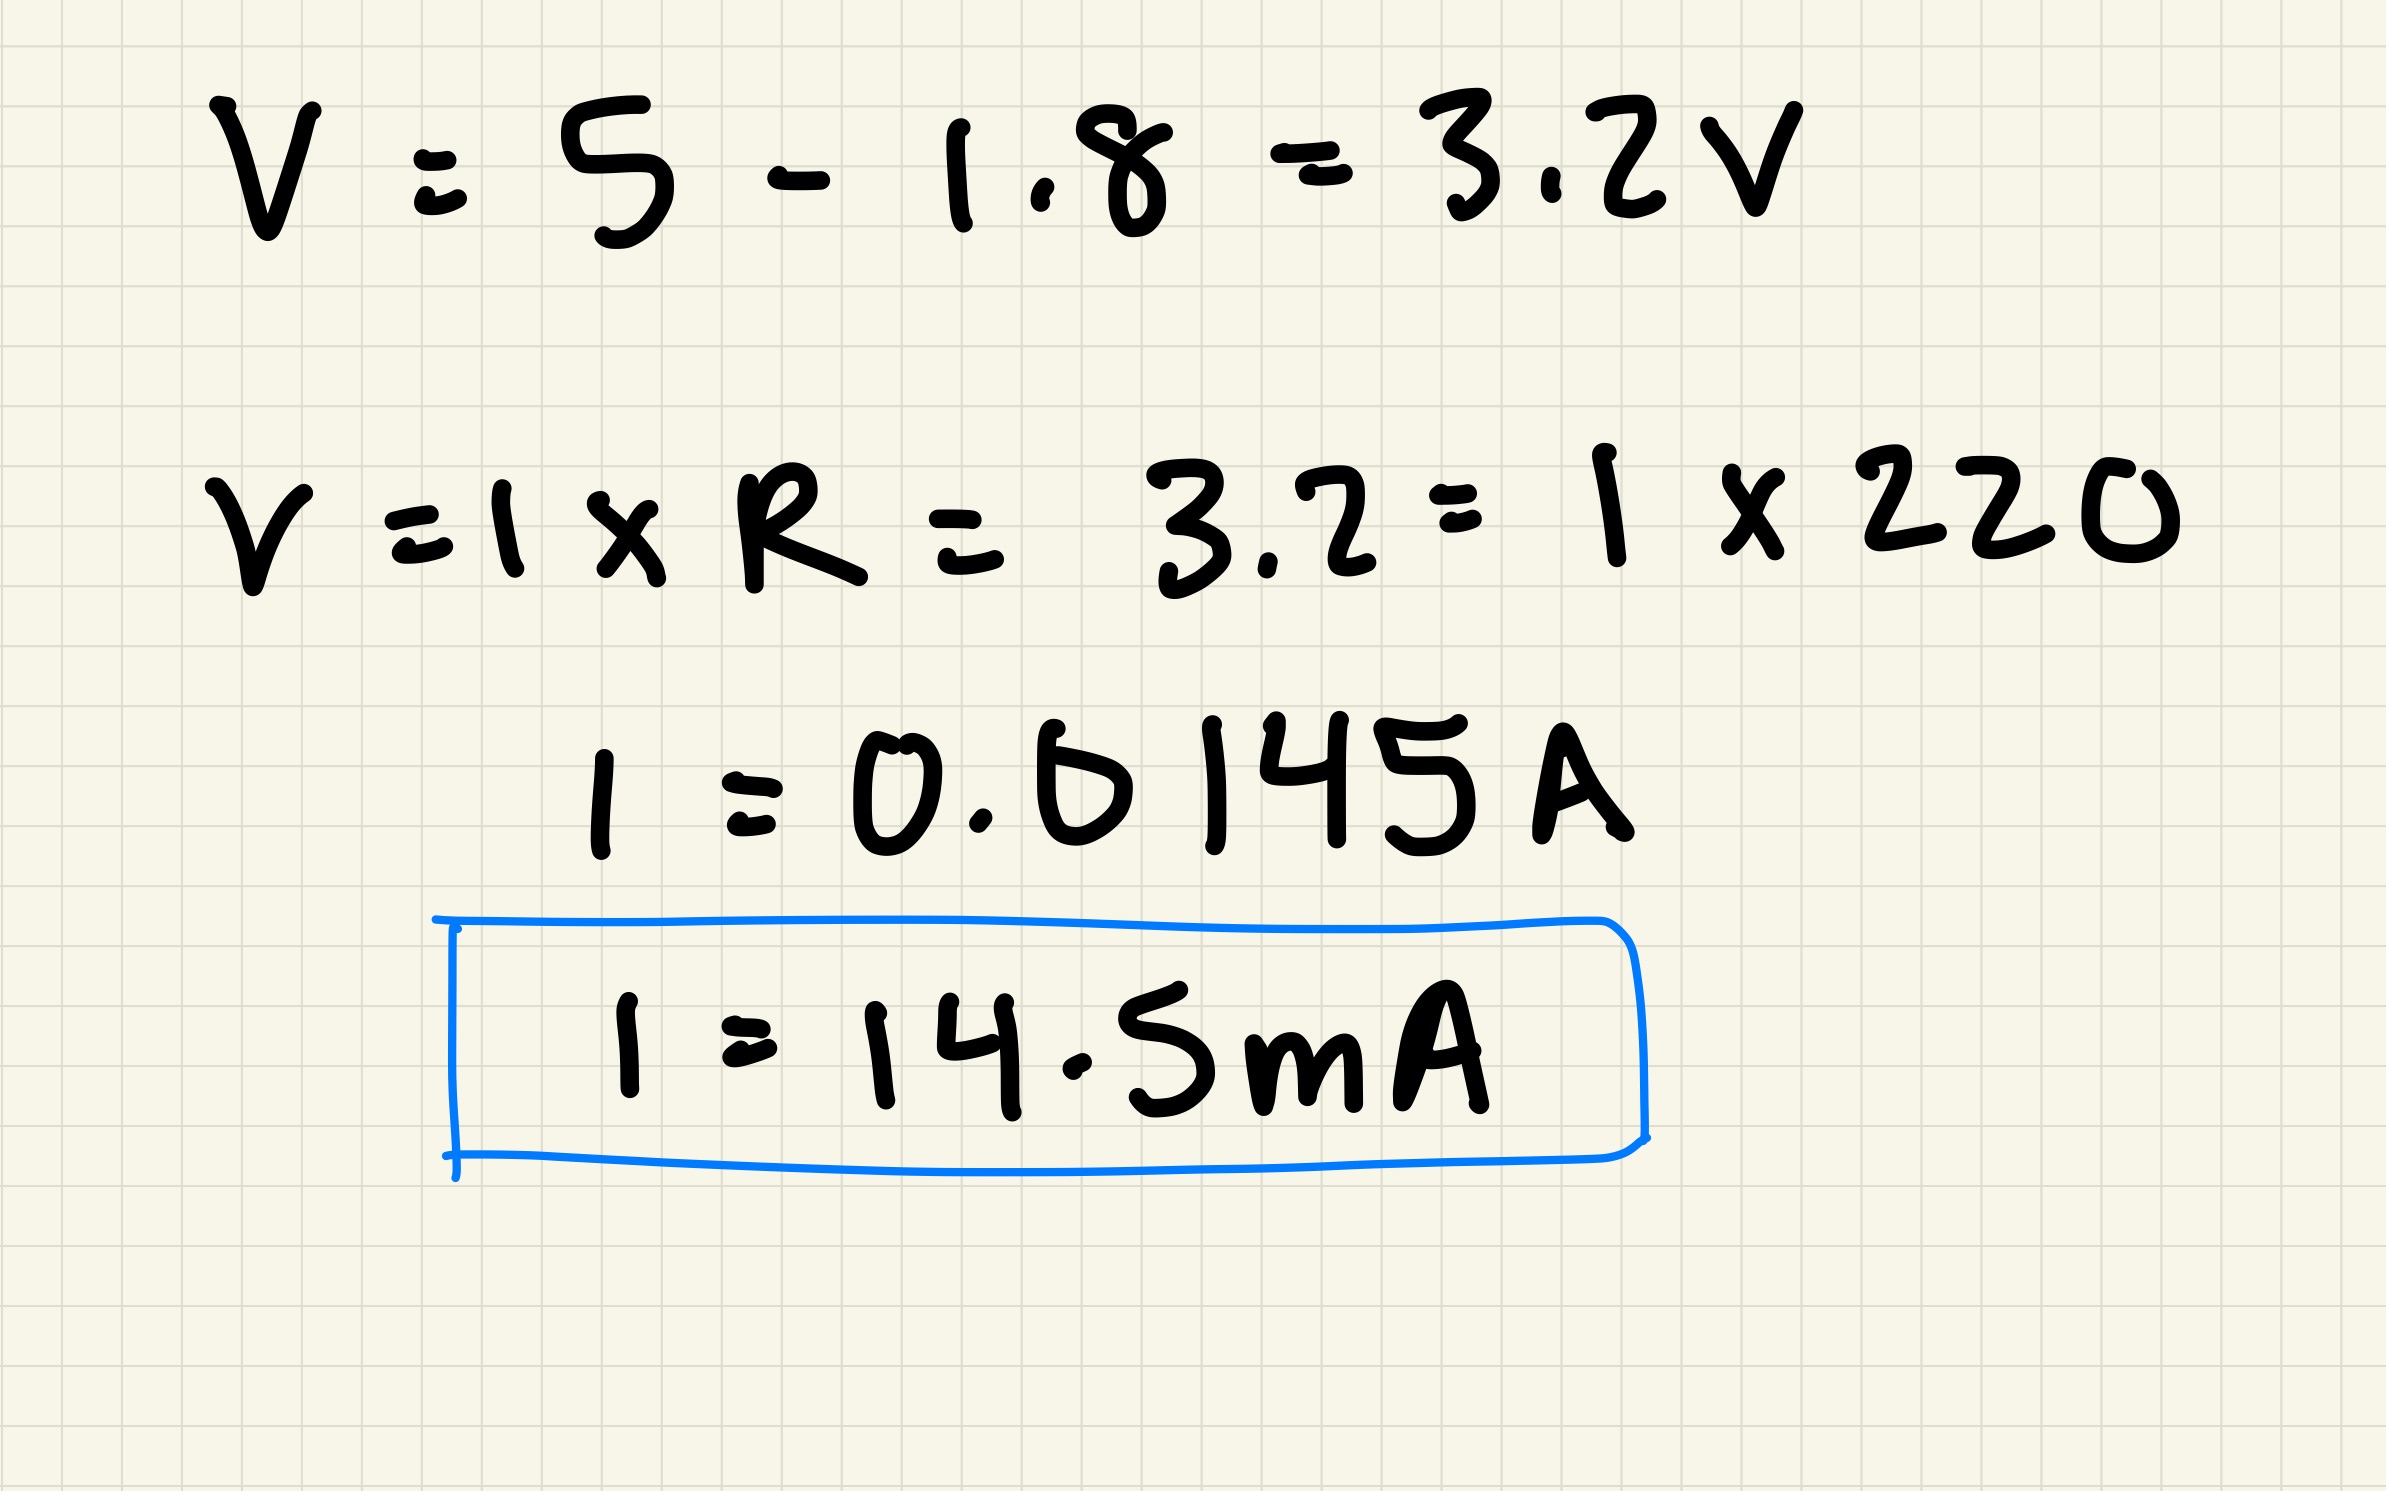 V = 5 - 1.8 = 3.2V
V = I x R = 3.2 = I x 220
I = 0.0145A
I = 14.5mA